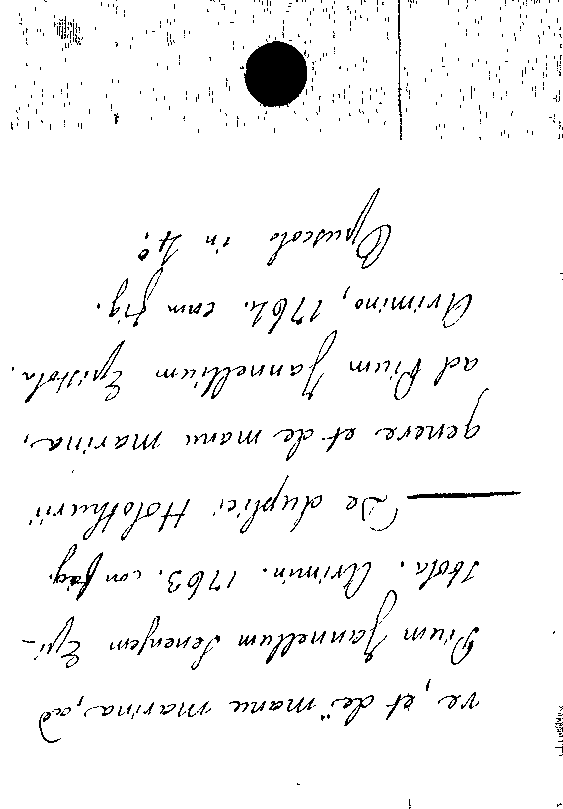 re, et de manu marina, ad
Pium Jannellum Senensem Epi-
stola. Arimin. 1763. con fig.
— De duplici Holothurii
genere et de manu marina,
ad Pium Jannellium Epistola.
Arimino, 1762. cum fig.
Opuscolo in 4º.